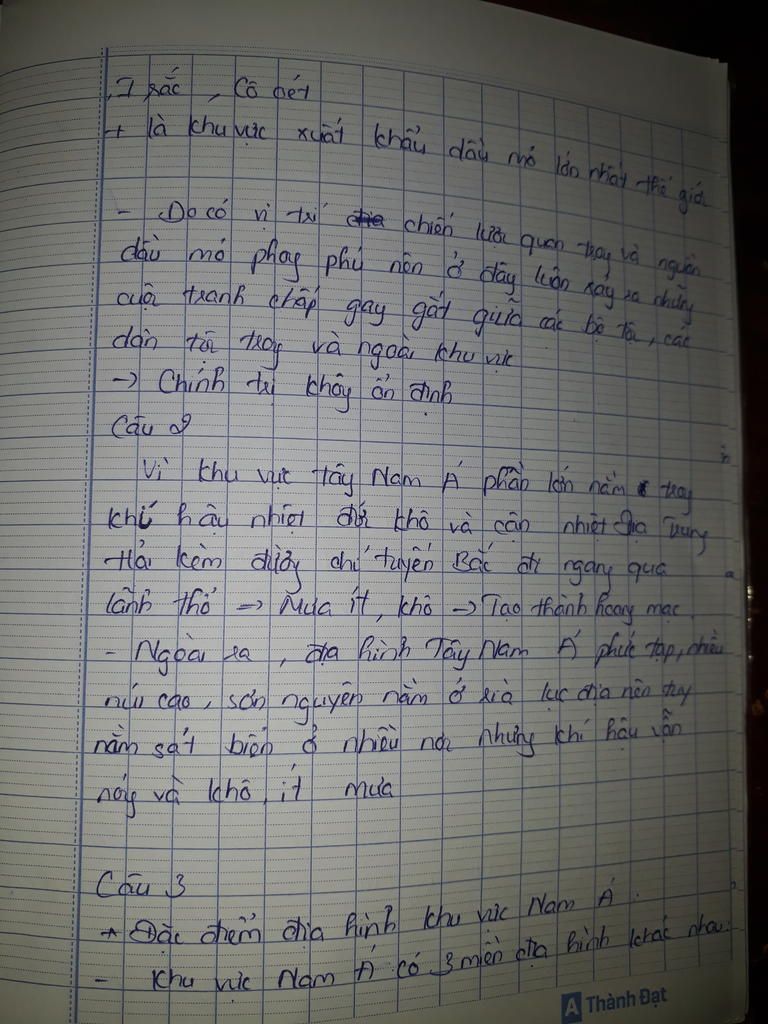 I rắc, Cô oét
+ là khu vực xuất khẩu dầu mỏ lớn nhất thế giới
- Do có vị trí địa chiến lược quan trọng và nguồn
dầu mỏ phong phú nên ở đây luôn xảy ra những
cuộc tranh chấp gay gắt giữa các bộ tộc, các
dân tộc trong và ngoài khu vực
-> Chính trị không ổn định
Câu 2
Vì khu vực Tây Nam Á phần lớn nằm trong
khí hậu nhiệt đới khô và cận nhiệt Địa Trung
Hải kèm đường chí tuyến Bắc đi ngang qua
lãnh thổ -> Mưa ít, khô -> Tạo thành hoang mạc
- Ngoài ra, địa hình Tây Nam Á phức tạp, nhiều
núi cao, sơn nguyên nằm ở rìa lục địa nên tuy
nằm sát biển ở nhiều nơi nhưng khí hậu vẫn
nóng và khô, ít mưa
Câu 3
* Đặc điểm địa hình khu vực Nam Á:
- Khu vực Nam Á có 3 miền địa hình khác nhau:
A Thành Đạt